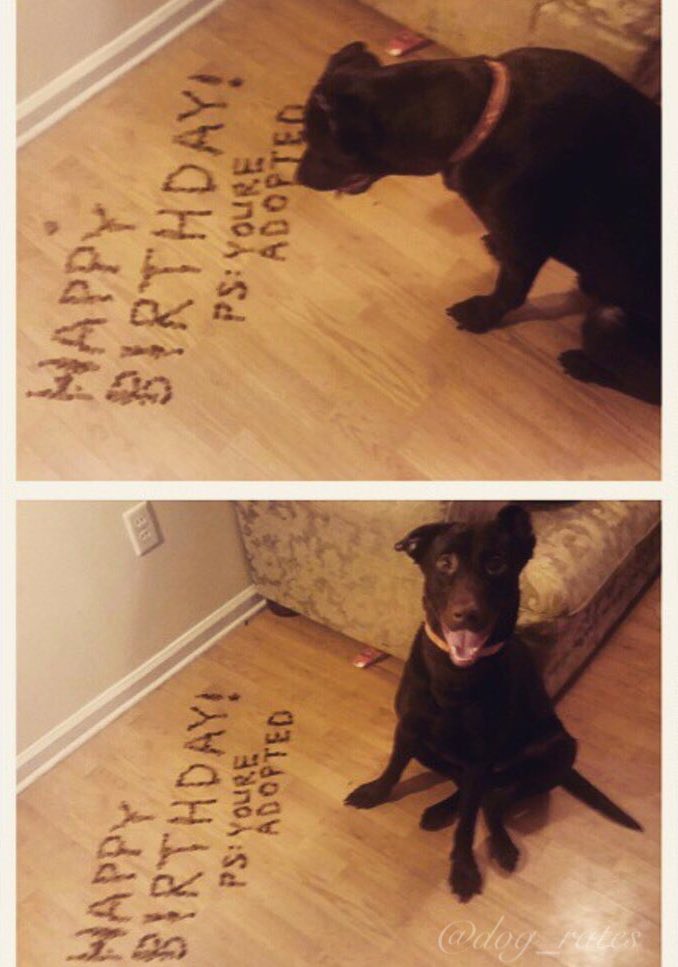 HAPPY
BIRTHDAY!
PS: YOURE
ADOPTED
HAPPY
BIRTHDAY!
PS: YOURE
ADOPTED
@dog_rates